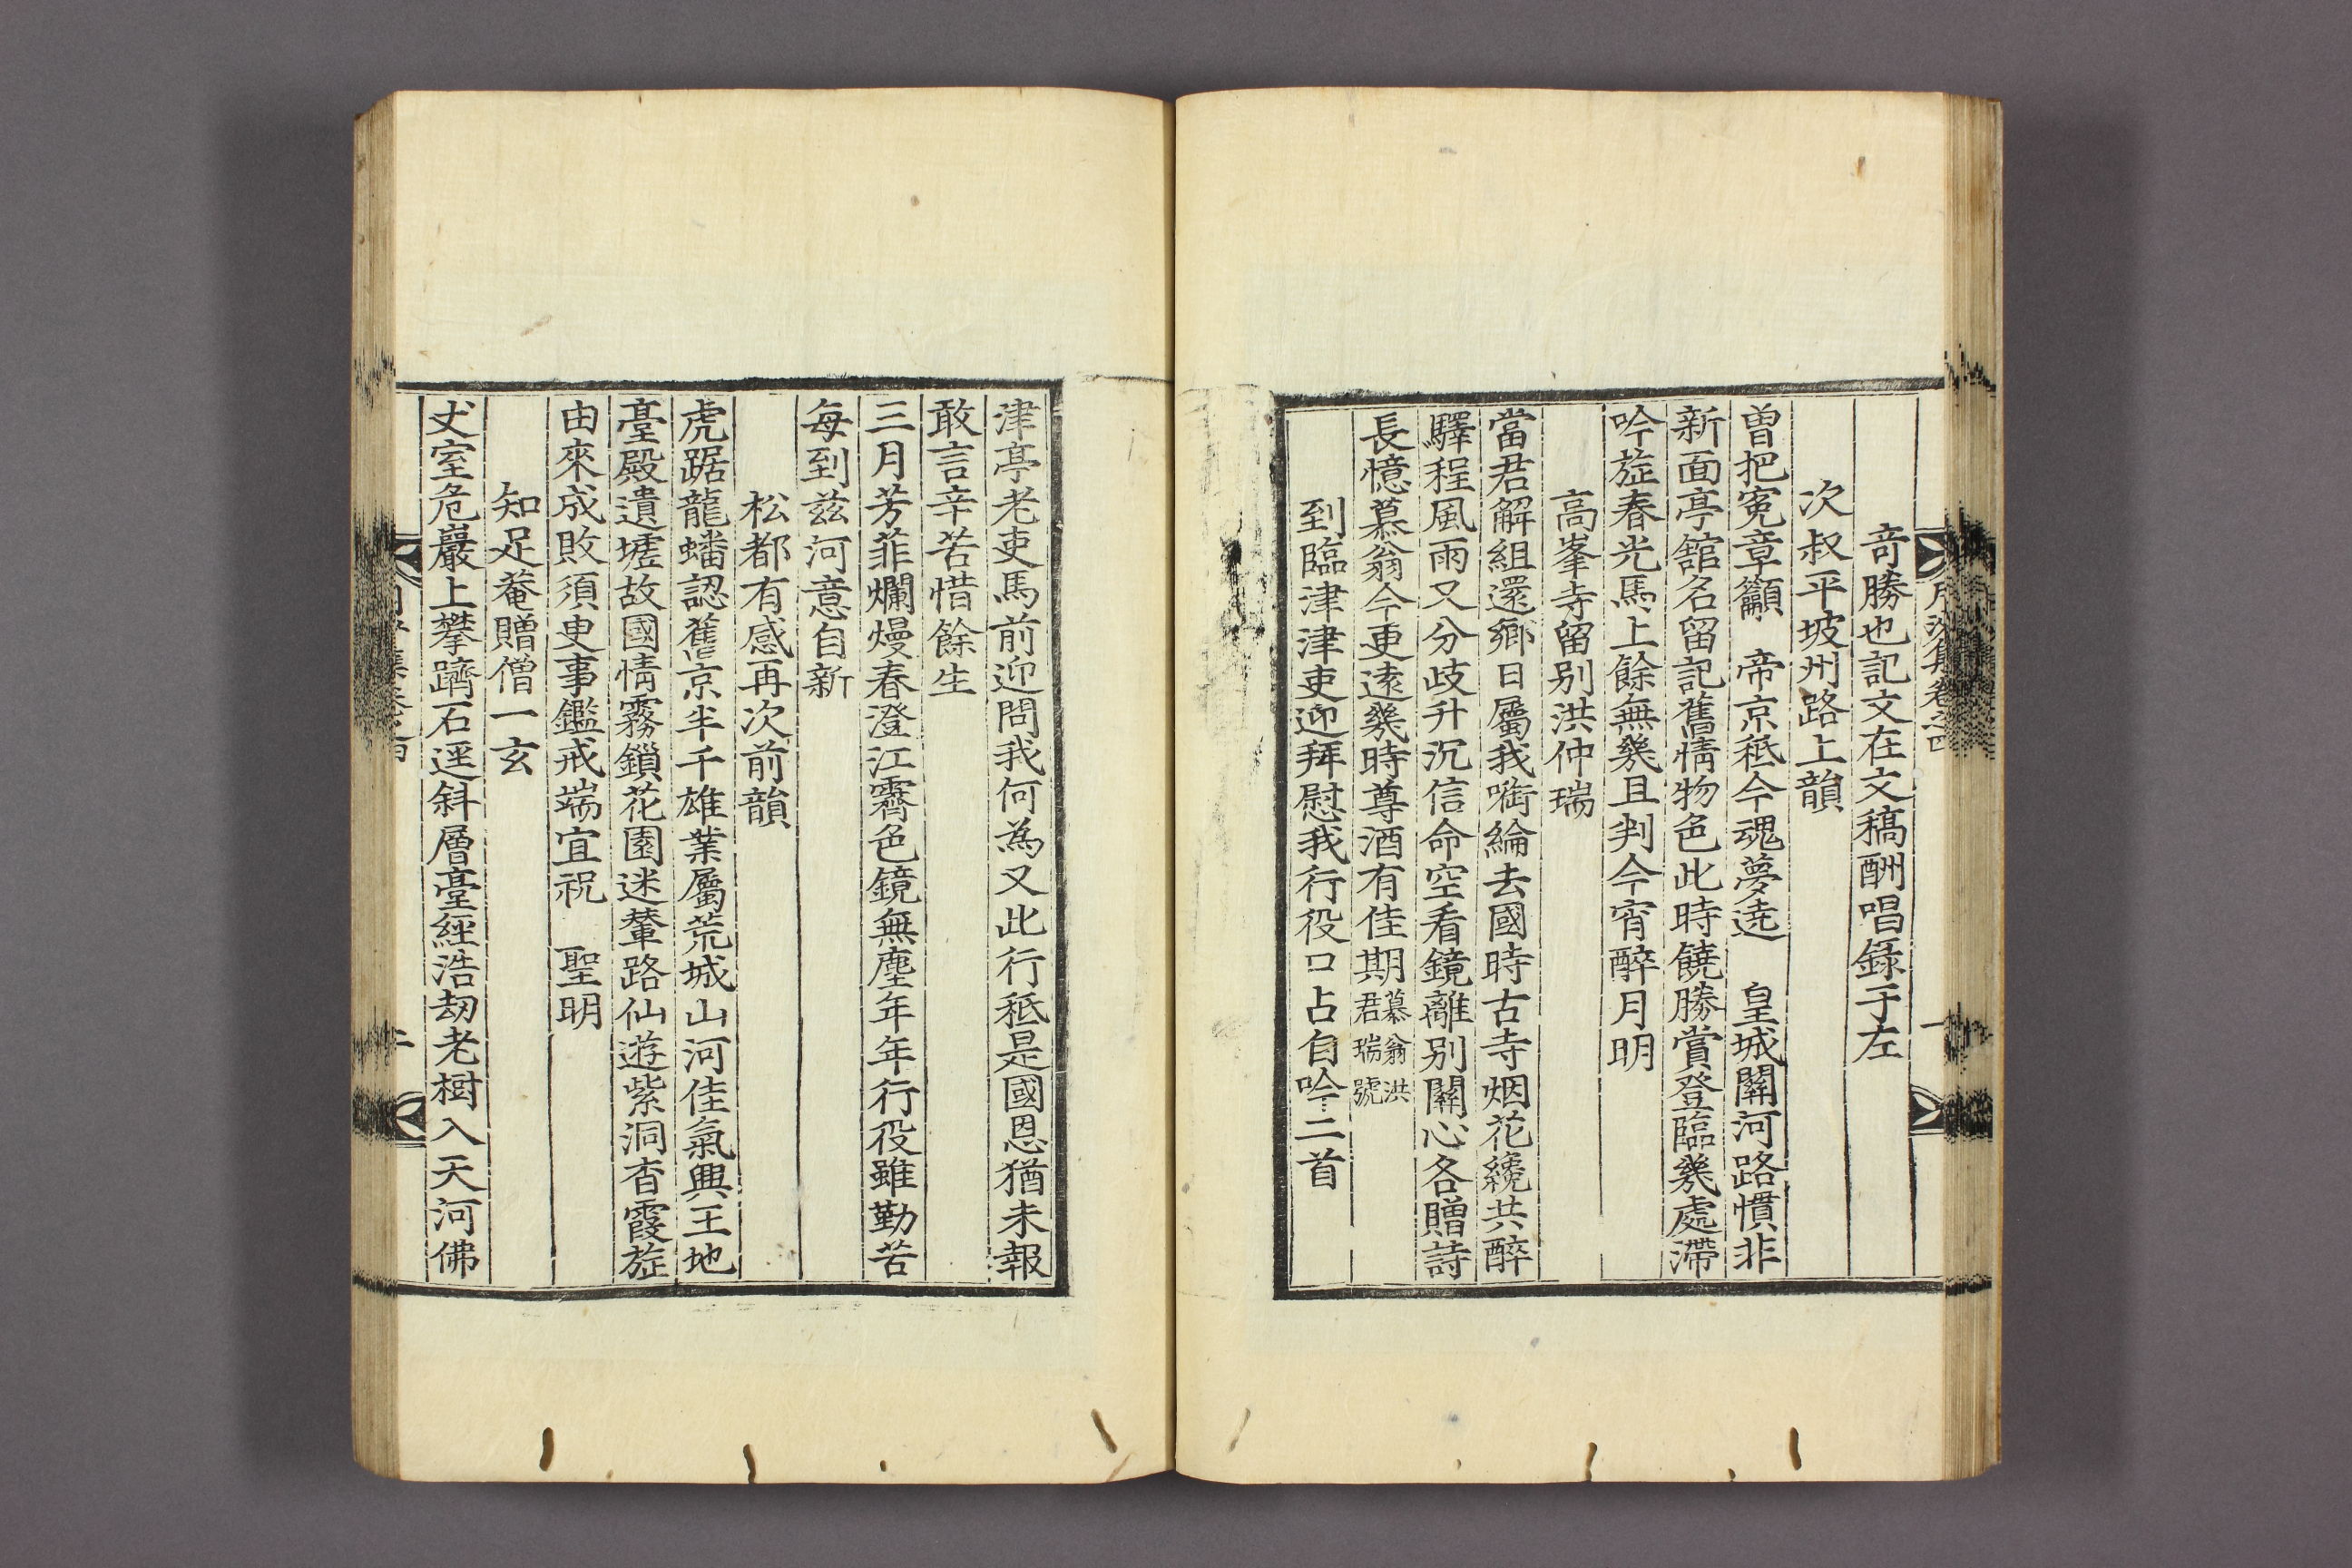 月沙集卷之四
一
奇勝也記文在文稿酬唱錄于左
次叔平坡州路上韻
曾把寃章籲　帝京秪今魂夢遶　皇城關河路慣非
新面亭舘名留記舊情物色此時饒勝賞登臨幾處滯
吟旌春光馬上餘無幾且判今宵醉月明
高峯寺留別洪仲瑞
當君解組還鄉日屬我啣綸去國時古寺烟花纔共醉
驛程風雨又分歧升沉信命空看鏡離別關心各贈詩
長憶慕翁今更遠幾時尊酒有佳期慕翁洪君瑞號
到臨津津吏迎拜慰我行役口占自吟二首
津亭老吏馬前迎問我何為又此行秪是國恩猶未報
敢言辛苦惜餘生
三月芳菲爛熳春澄江霽色鏡無塵年年行役雖勤苦
每到茲河意自新
松都有感再次前韻
虎踞龍蟠認舊京半千雄業屬荒城山河佳氣興王地
臺殿遺墟故國情霧鎖花園迷輦路仙遊紫洞杳霞旌
由來成敗須吏事鑑戒端宜祝　聖明
知足菴贈僧一玄
丈室危巖上攀躋石逕斜層臺經浩劫老樹入天河佛
二